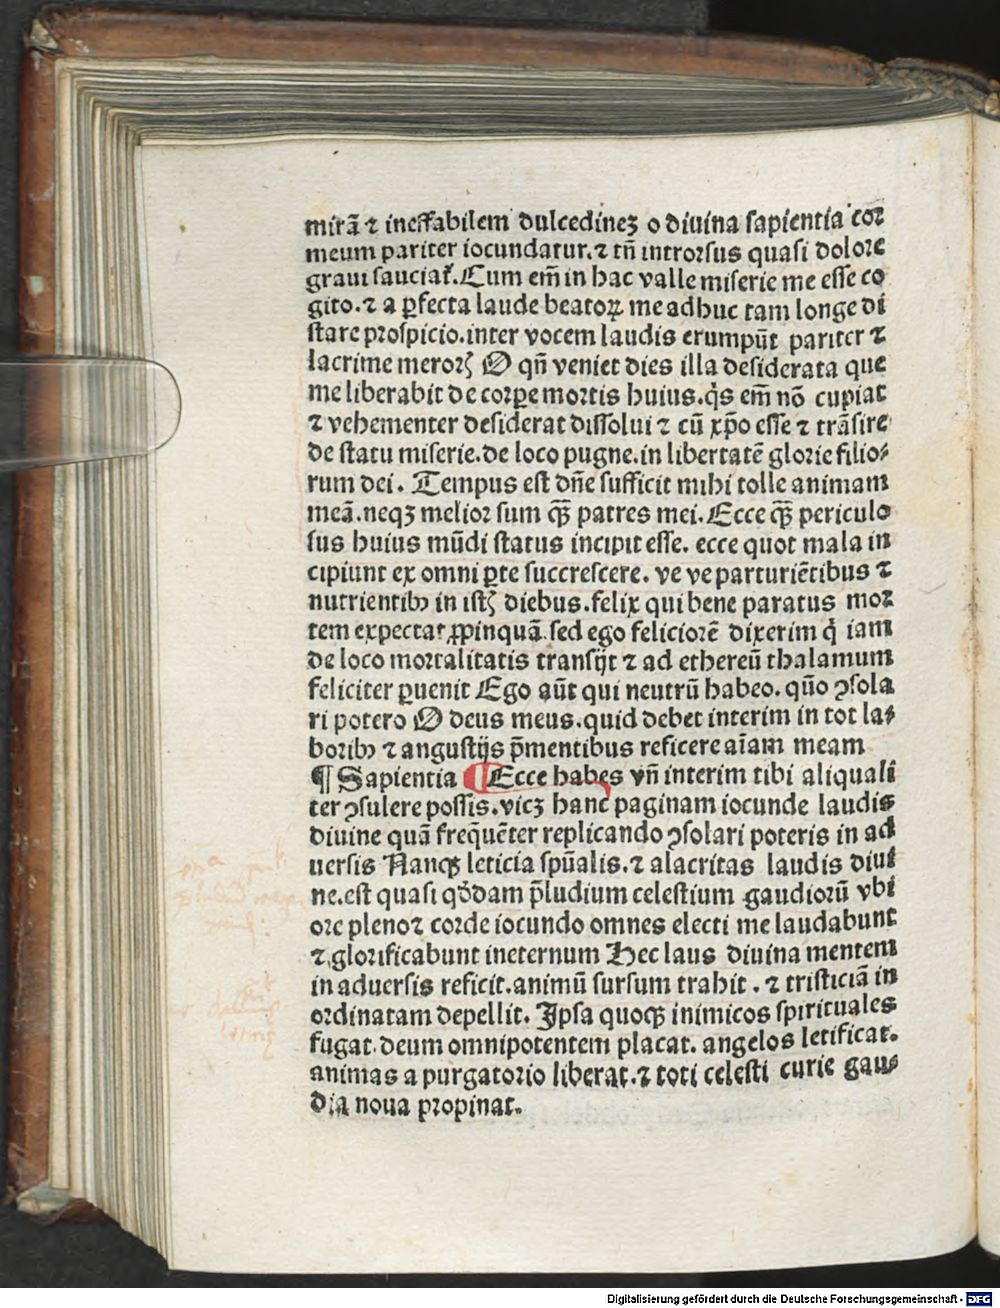 mirã ⁊ ineffabilem dulcedinez o diuina sapientia cor
meum pariter iocundatur. ⁊ tñ introrsus quasi dolore
graui sauciat̃. Cum em̃ in hac valle miserie me esse co
gito. ⁊ a ꝑfecta laude beatoꝝ me adhuc tam longe di
stare prospicio. inter vocem laudis erumpũt pariter ⁊
lacrime meroꝝ O qñ veniet dies illa desiderata que
me liberabit de corꝑe mortis huius. q̃s em̃ nõ cupiat
⁊ vehementer desiderat dissolui ⁊ cũ xp̃o esse ⁊ trãsire
de statu miserie. de loco pugne. in libertatẽ glorie filio⸗
rum dei. Tempus est dñe sufficit mihi tolle animam
meã. neqꝫ melior sum qꝫ̃ patres mei. Ecce qꝫ̃ periculo
sus huius mũdi status incipit esse. ecce quot mala in
cipiunt ex omni ꝑte succrescere. ve ve parturiẽtibus ⁊
nutrientibꝰ in istꝭ diebus. felix qui bene paratus mor
tem expectat ꝓpinquã. sed ego feliciorẽ dixerim q̇ iam
de loco mortalitatis transijt ⁊ ad ethereũ thalamum
feliciter ꝑuenit Ego aũt qui neutrũ habeo. quõ ꝯsola
ri potero O deus meus. quid debet interim in tot la⸗
boribꝰ ⁊ angustijs p̃mentibus reficere aĩam meam
¶ Sapientia ¶ Ecce habes vñ interim tibi aliquali
ter ꝯsulere possis. vicꝫ hanc paginam iocunde laudis
diuine quã freq̃uẽter replicando ꝯsolari poteris in ad
uersis Nanqꝫ leticia spũalis. ⁊ alacritas laudis diui
ne. est quasi qõdam p̃ludium celestium gaudiorũ vbi
ore pleno ⁊ corde iocundo omnes electi me laudabunt
⁊ glorificabunt ineternum Hec laus diuina mentem
in aduersis reficit. animũ sursum trahit. ⁊ tristiciã in
ordinatam depellit. Ipsa quoqꝫ inimicos spirituales
fugat. deum omnipotentem placat. angelos letificat.
animas a purgatorio liberat. ⁊ toti celesti curie gau⸗
dia noua propinat.
Digitalisierung gefördert durch die Deutsche Forschungsgemeinschaft - DFG